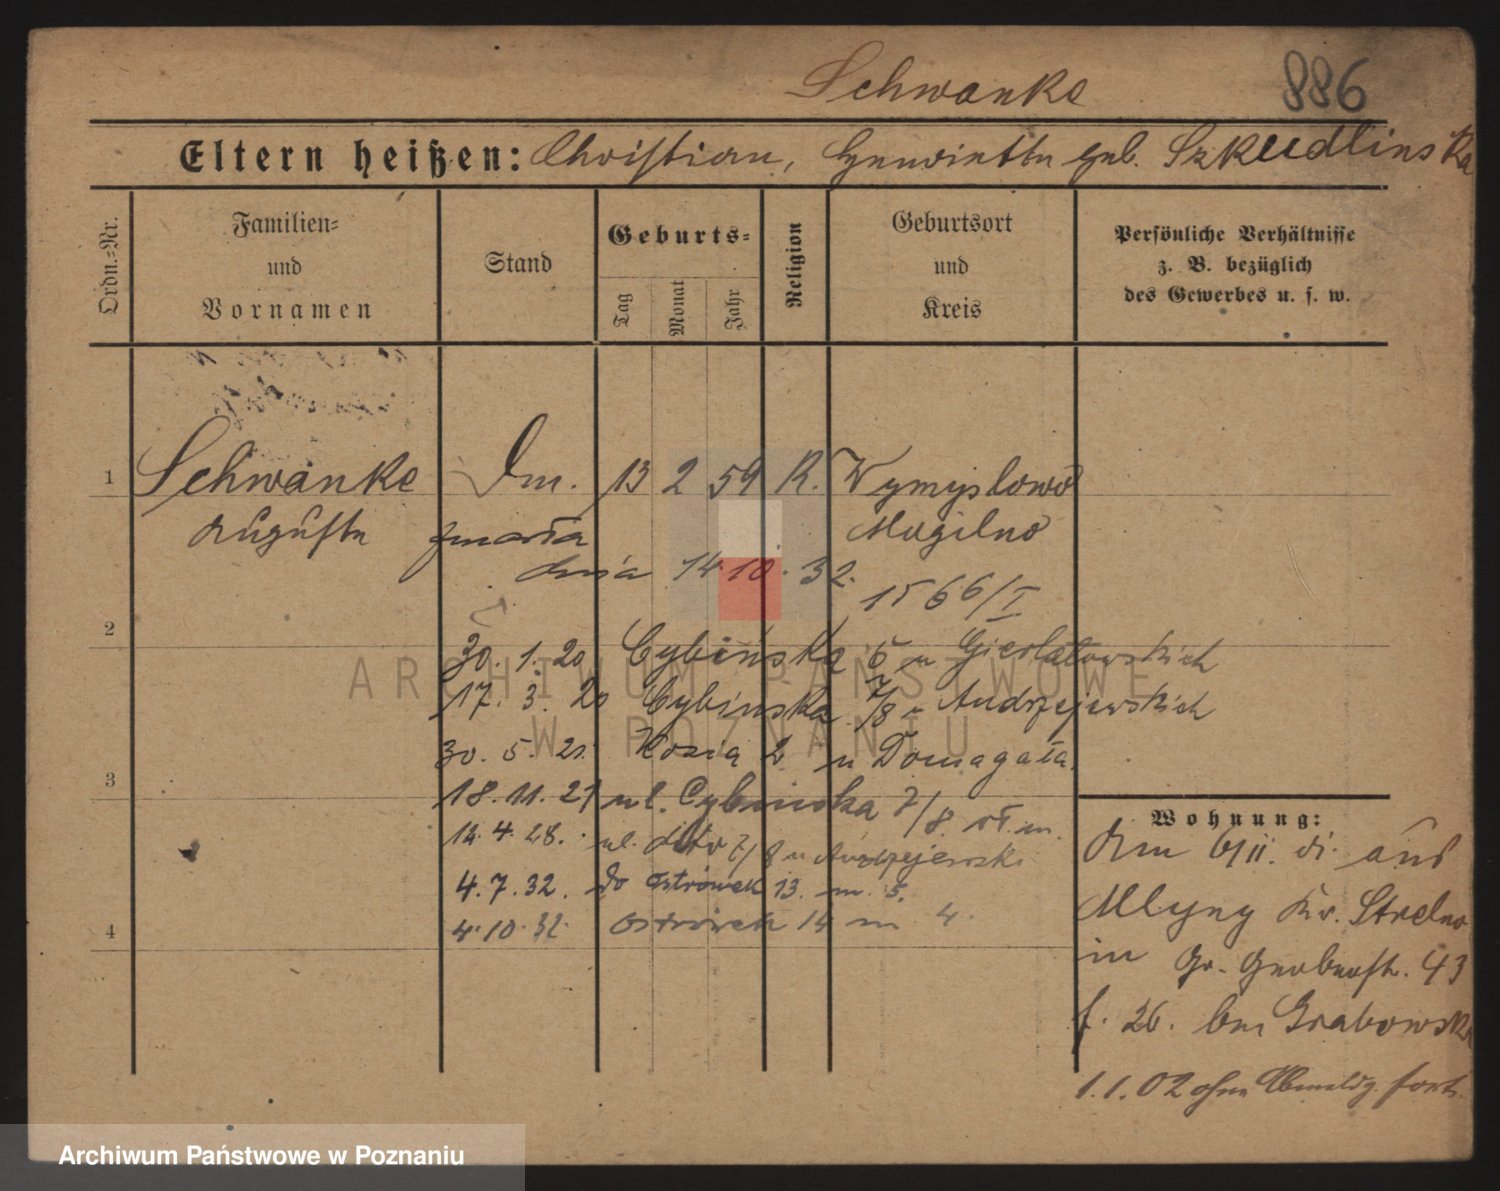 Schwanke 886
Eltern heißen: Christian, Henriette geb. Szkudlinska
Ordn.-Nr.
Familien-
und
Vornamen
Stand
Geburts-
Tag
Monat
Jahr
Religion
Geburtsort
und
Kreis
Persönliche Verhältnisse
z. B. bezüglich
des Gewerbes u. s. w.
1 Schwanke Dm. 13 2 59 R. Wymyslowo
Auguste zmarła Mogilno
dnia 14.10.32.
1566/I
2
30.1.20 Cybińska 6 u Gierlatowskich
17.3.20 Cybinska 7/8 u Andrzejewskich
30.5.21. Kozia 2 u Domagała.
3
18.11.21 ul. Cybinska 7/8 m.
12.4.28. ul. dito 7/8 u Andrzejewski
4.7.32. do Ostrówek 13. m. 5.
4 4.10.32. Ostrówek 14 m 4.
Wohnung:
Am 6/11. aus
Mlyny Kr. Strelno
in Gr. Gerberstr. 43
f. 26. bei Grabowska
1.1.02 ohne Abmeldg. fort.
ARCHIWUM PAŃSTWOWE
W POZNANIU
Archiwum Państwowe w Poznaniu